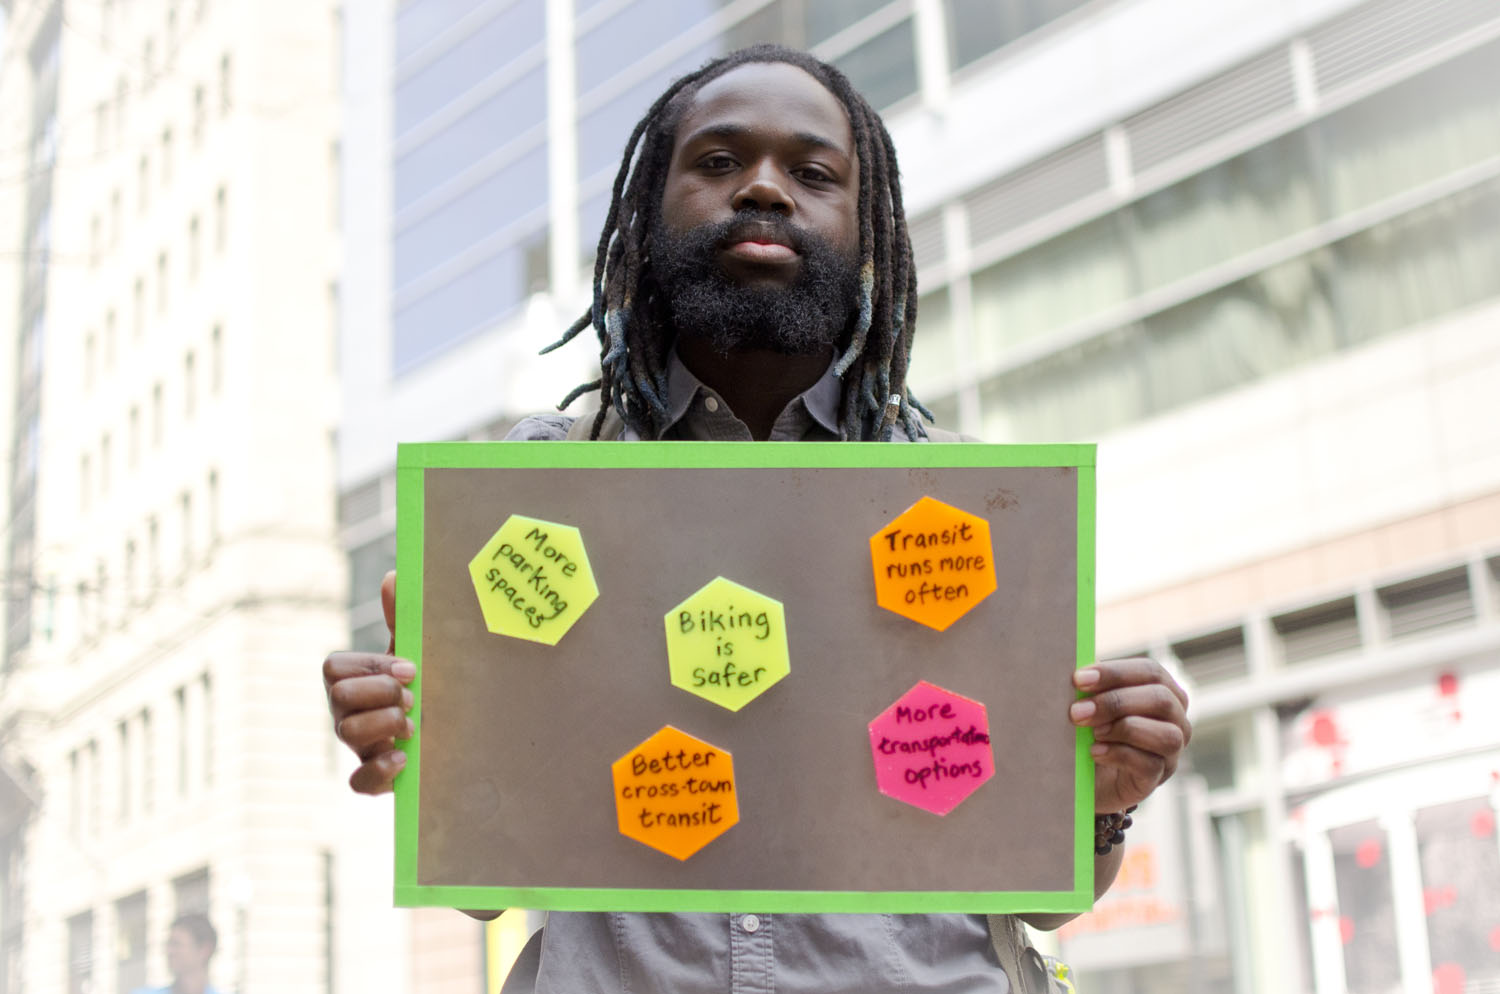 More
parking
spaces
Biking
is
safer
Transit
runs more
often
Better
cross-town
transit
More
transportation
options